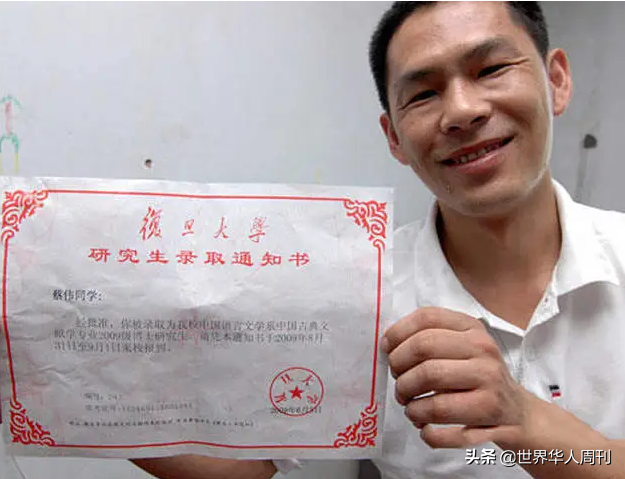 復旦大學
研究生录取通知书
蔡伟同学:
经批准,你被录取为我校中国语言文学系中国古典文
献学专业2009级博士研究生。请凭本通知书于2009年8月
31日至9月1日来校报到。
编号:
复旦大学
2009年6月15日
头条 @世界华人周刊